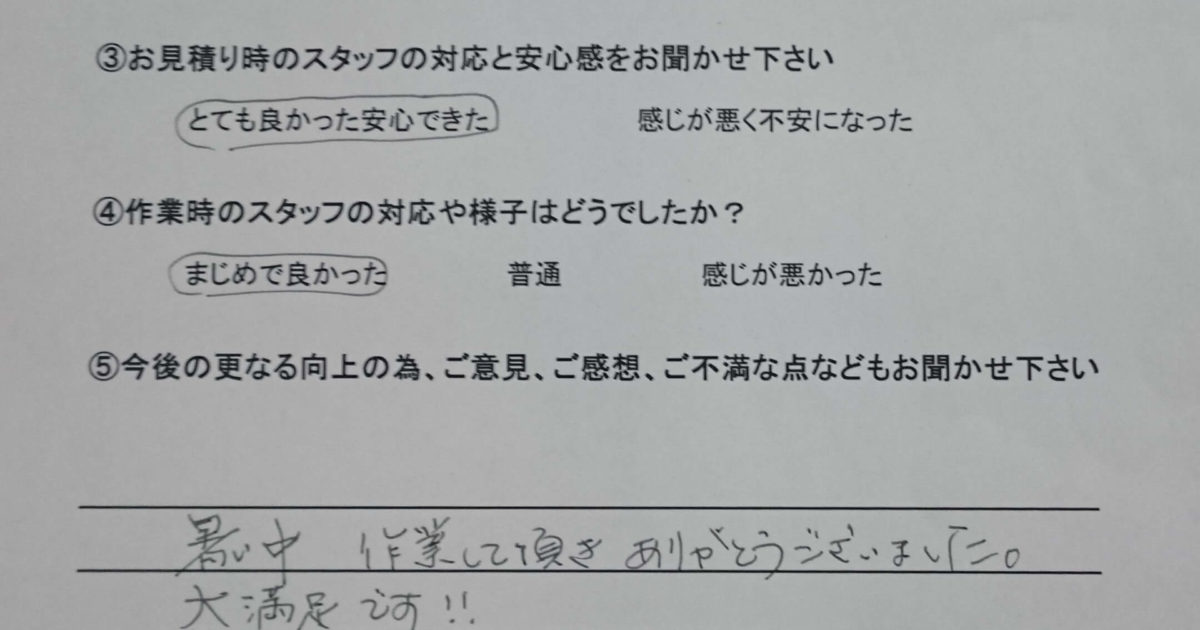 ③お見積り時のスタッフの対応と安心感をお聞かせ下さい
とても良かった安心できた 感じが悪く不安になった
④作業時のスタッフの対応や様子はどうでしたか？
まじめで良かった 普通 感じが悪かった
⑤今後の更なる向上の為、ご意見、ご感想、ご不満な点などもお聞かせ下さい
暑い中 作業して頂き ありがとうございました。
大満足です!!